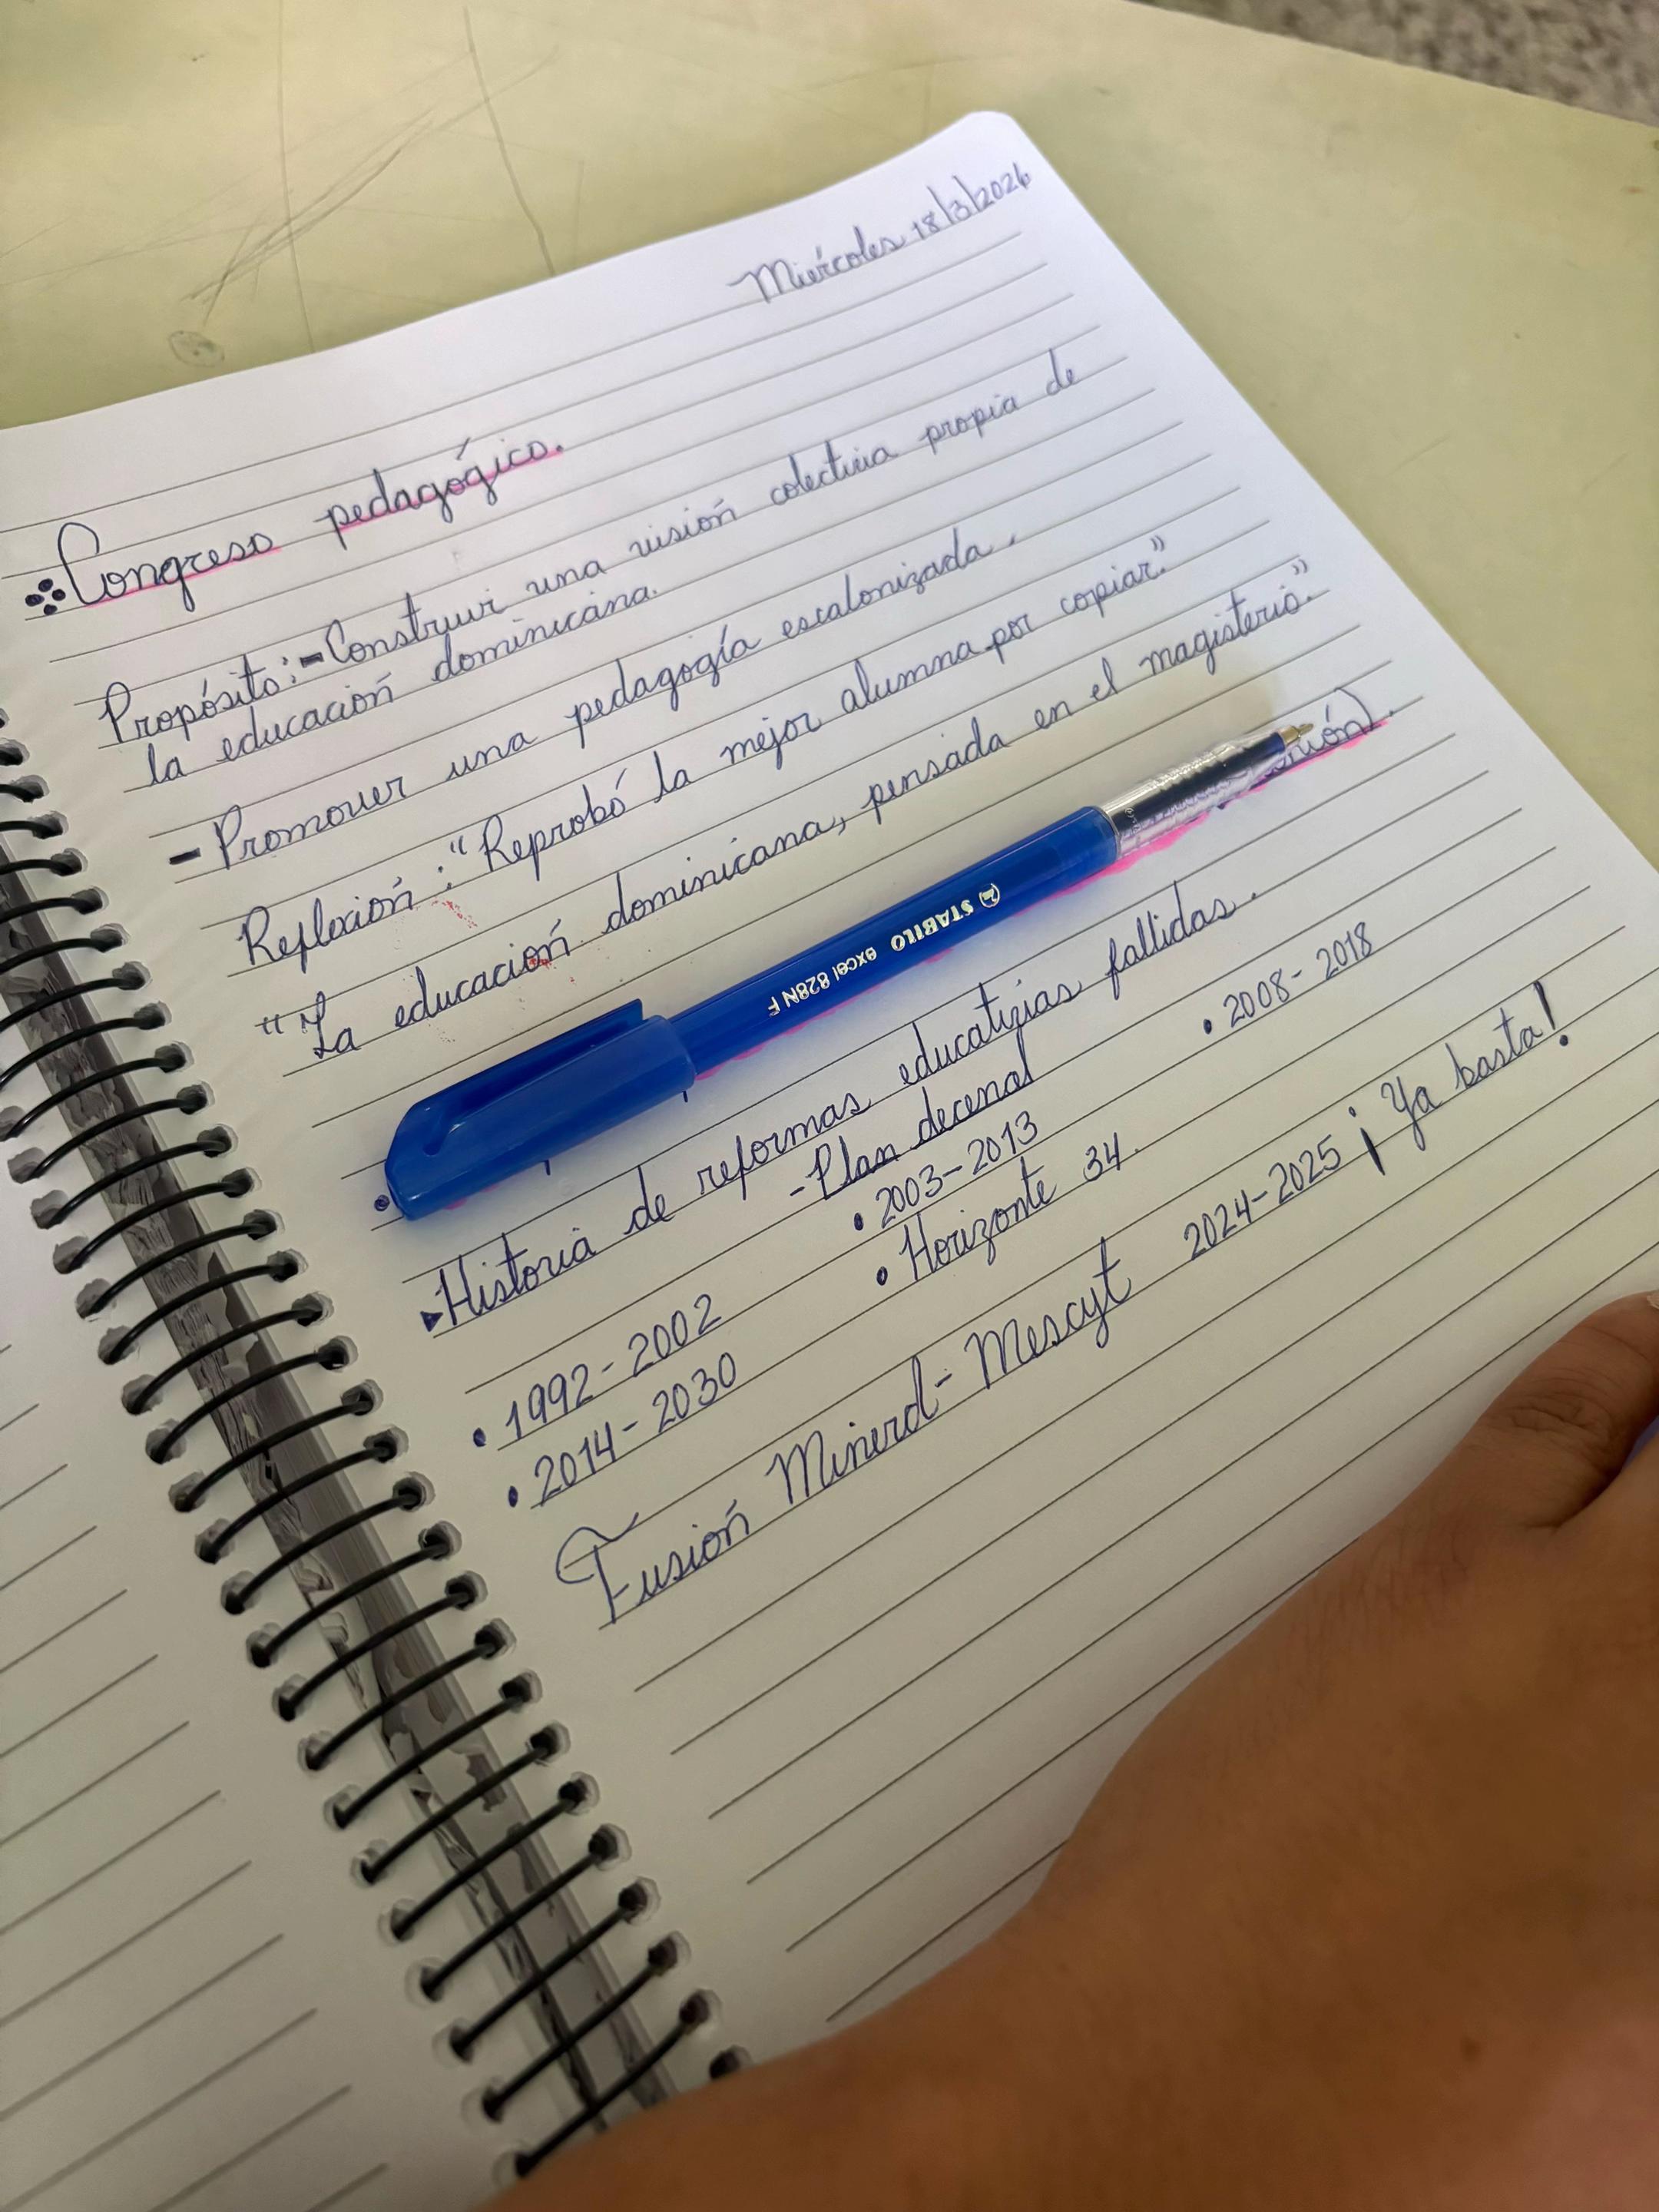 Miércoles 18/3/2026
Congreso pedagógico.
Propósito:-Construir una visión colectiva propia de
la educación dominicana.
-Promover una pedagogía escalonizada.
Reflexión: "Reprobó la mejor alumna por copiar."
"La educación dominicana, pensada en el magisterio."
STABILO excel 828N F
Historia de reformas educativas fallidas.
-Plan decenal
• 1992-2002 • 2003-2013 • 2008-2018
• 2014-2030 • Horizonte 34.
Fusión Minerd-Mescyt 2024-2025 ¡Ya basta!